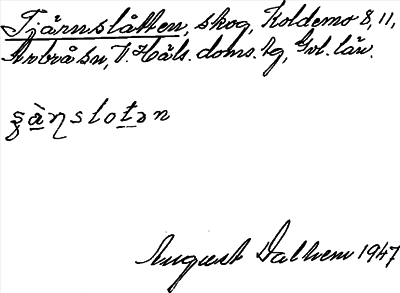 Tjärnslåtten, skog, Koldemo 8, 11,
Arbrå sn, V. Häls. doms. hg, Gvl. län.
s̨à̱ηsloṯən
August Dalhem 1947